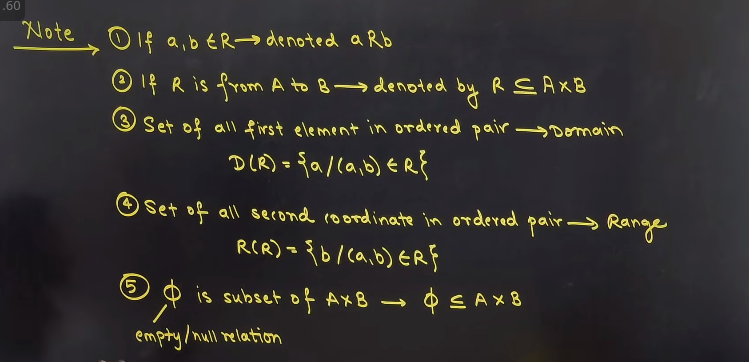 .60
Note → ① If a,b ∈ R → denoted aRb
② If R is from A to B → denoted by R ⊆ A×B
③ Set of all first element in ordered pair → Domain
D(R) = {a/(a,b) ∈ R}
④ Set of all second coordinate in ordered pair → Range
R(R) = {b/(a,b) ∈ R}
⑤ ϕ is subset of A×B → ϕ ⊆ A×B
empty/null relation